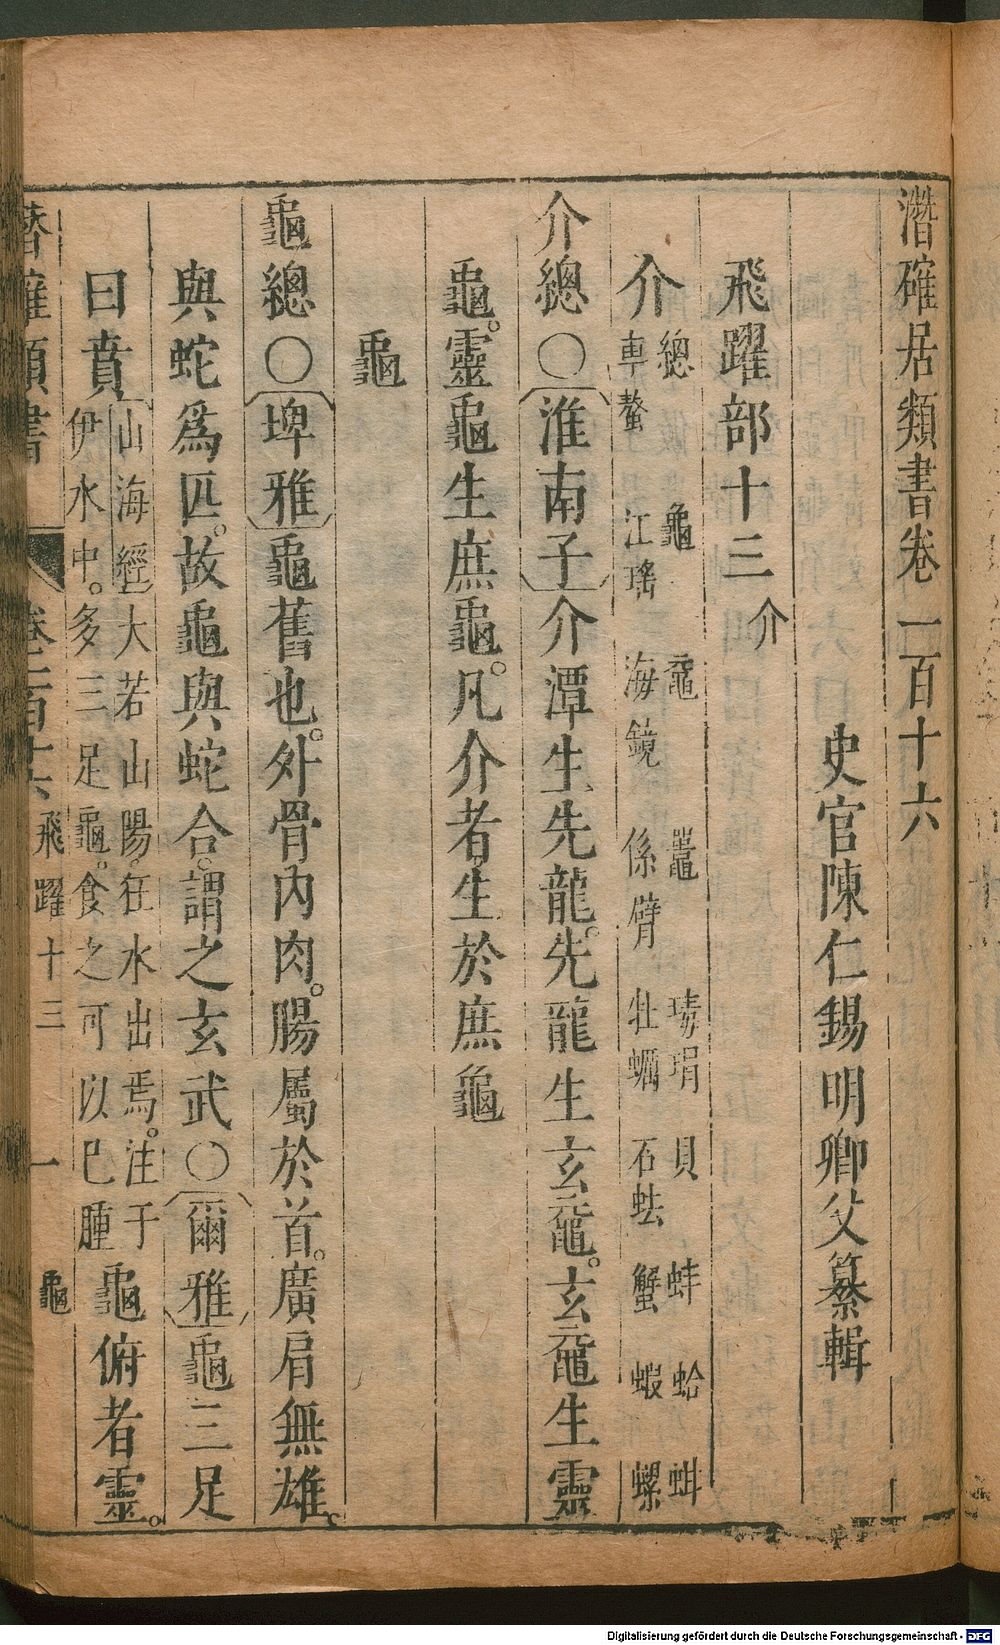 潛確居類書卷一百十六
史官陳仁錫明卿父纂輯
飛躍部十三 介
介 總 龜 黿 鼉 瑇瑁 貝 蚌 蛤 蚶
車螯 江瑤 海鏡 係臂 牡蠣 石蚨 蟹 蝦 螺
介總○淮南子介潭生先龍。先龍生玄黿。玄黿生靈
龜。靈龜生庶龜。凡介者。生於庶龜
龜
龜總○埤雅龜舊也。外骨內肉。腸屬於首。廣肩無雄。
與蛇為匹。故龜與蛇合。謂之玄武○爾雅龜三足
曰賁 山海經大若山陽。狂水出焉。注于
伊水中。多三足龜。食之可以已腫 龜俯者靈。
潛確類書 卷一百十六 飛躍十三 一 龜
Digitalisierung gefördert durch die Deutsche Forschungsgemeinschaft - DFG